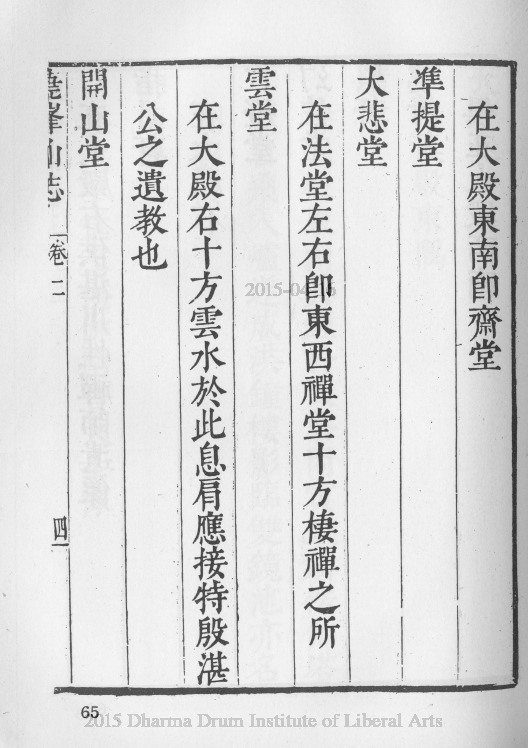 在大殿東南卽齋堂
凖提堂
大悲堂
在法堂左右卽東西禪堂十方棲禪之所
雲堂
在大殿右十方雲水於此息肩應接特殷湛
公之遺教也
開山堂
堯峯山志 卷二 四
65
2015 Dharma Drum Institute of Liberal Arts